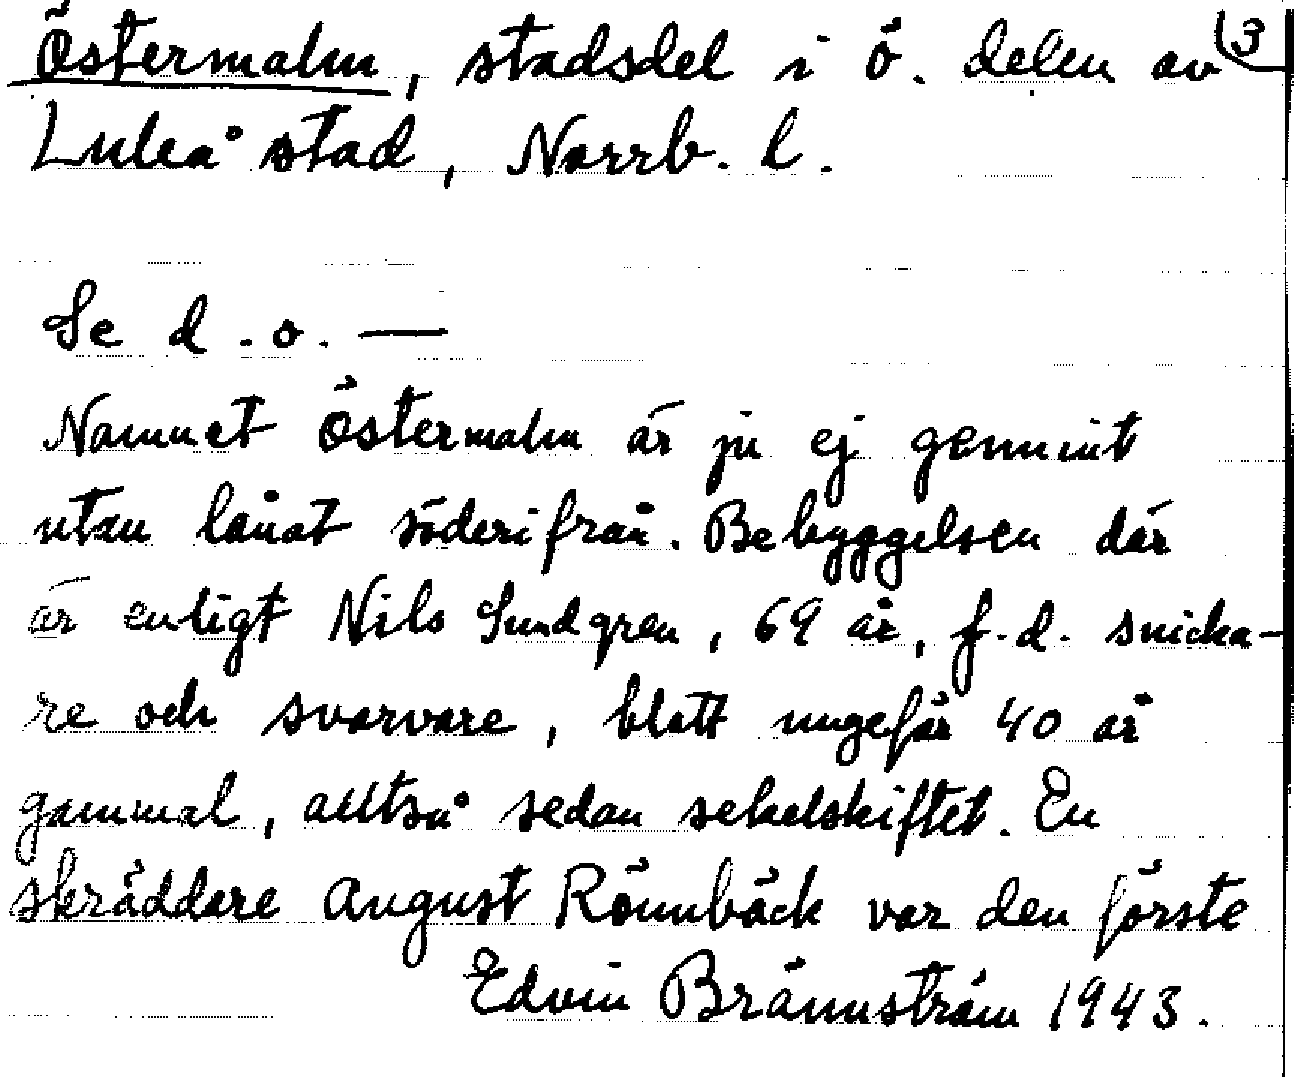 Östermalm, stadsdel i ö. delen av 3
Luleå stad, Norrb. l.
Se d. o. —
Namnet Östermalm är ju ej genuint
utan lånat söderifrån. Bebyggelsen där
är enligt Nils Sundgren, 69 år, f. d. snicka-
re och svarvare, blott ungefär 40 år
gammal, alltså sedan sekelskiftet. En
skräddare August Rönnbäck var den förste
Edvin Brännström 1943.